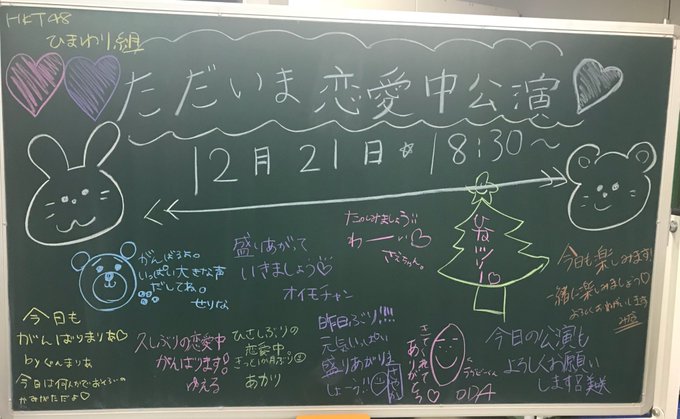 HKT48
ひまわり組
ただいま恋愛中公演
12月21日☆18:30～
たのしみましょう
わーい♡
さえちゃん。
ひなツリー
がんばるよ。
いっぱい大きな声
だしてね。
せりな
盛りあがって
いきましょう♡
オイモチャン
今日も楽しみます!
一緒に楽しみましょう♡
よろしくお願いします
今日も
がんばりまりあ♡
byぐんまりあ
今日は何人かでおそろいの
かみがただよ♡
久しぶりの恋愛中
がんばります。
ゆえる
ひさしぶりの
恋愛中
きっと1か月ぶり
あかり
昨日ぶり!!!
元気いっぱい
盛りあがりま
しょーう!!
きてくれて
ありがとう
ラッピーくん
ODA
今日の公演も
よろしくお願い
します 美咲